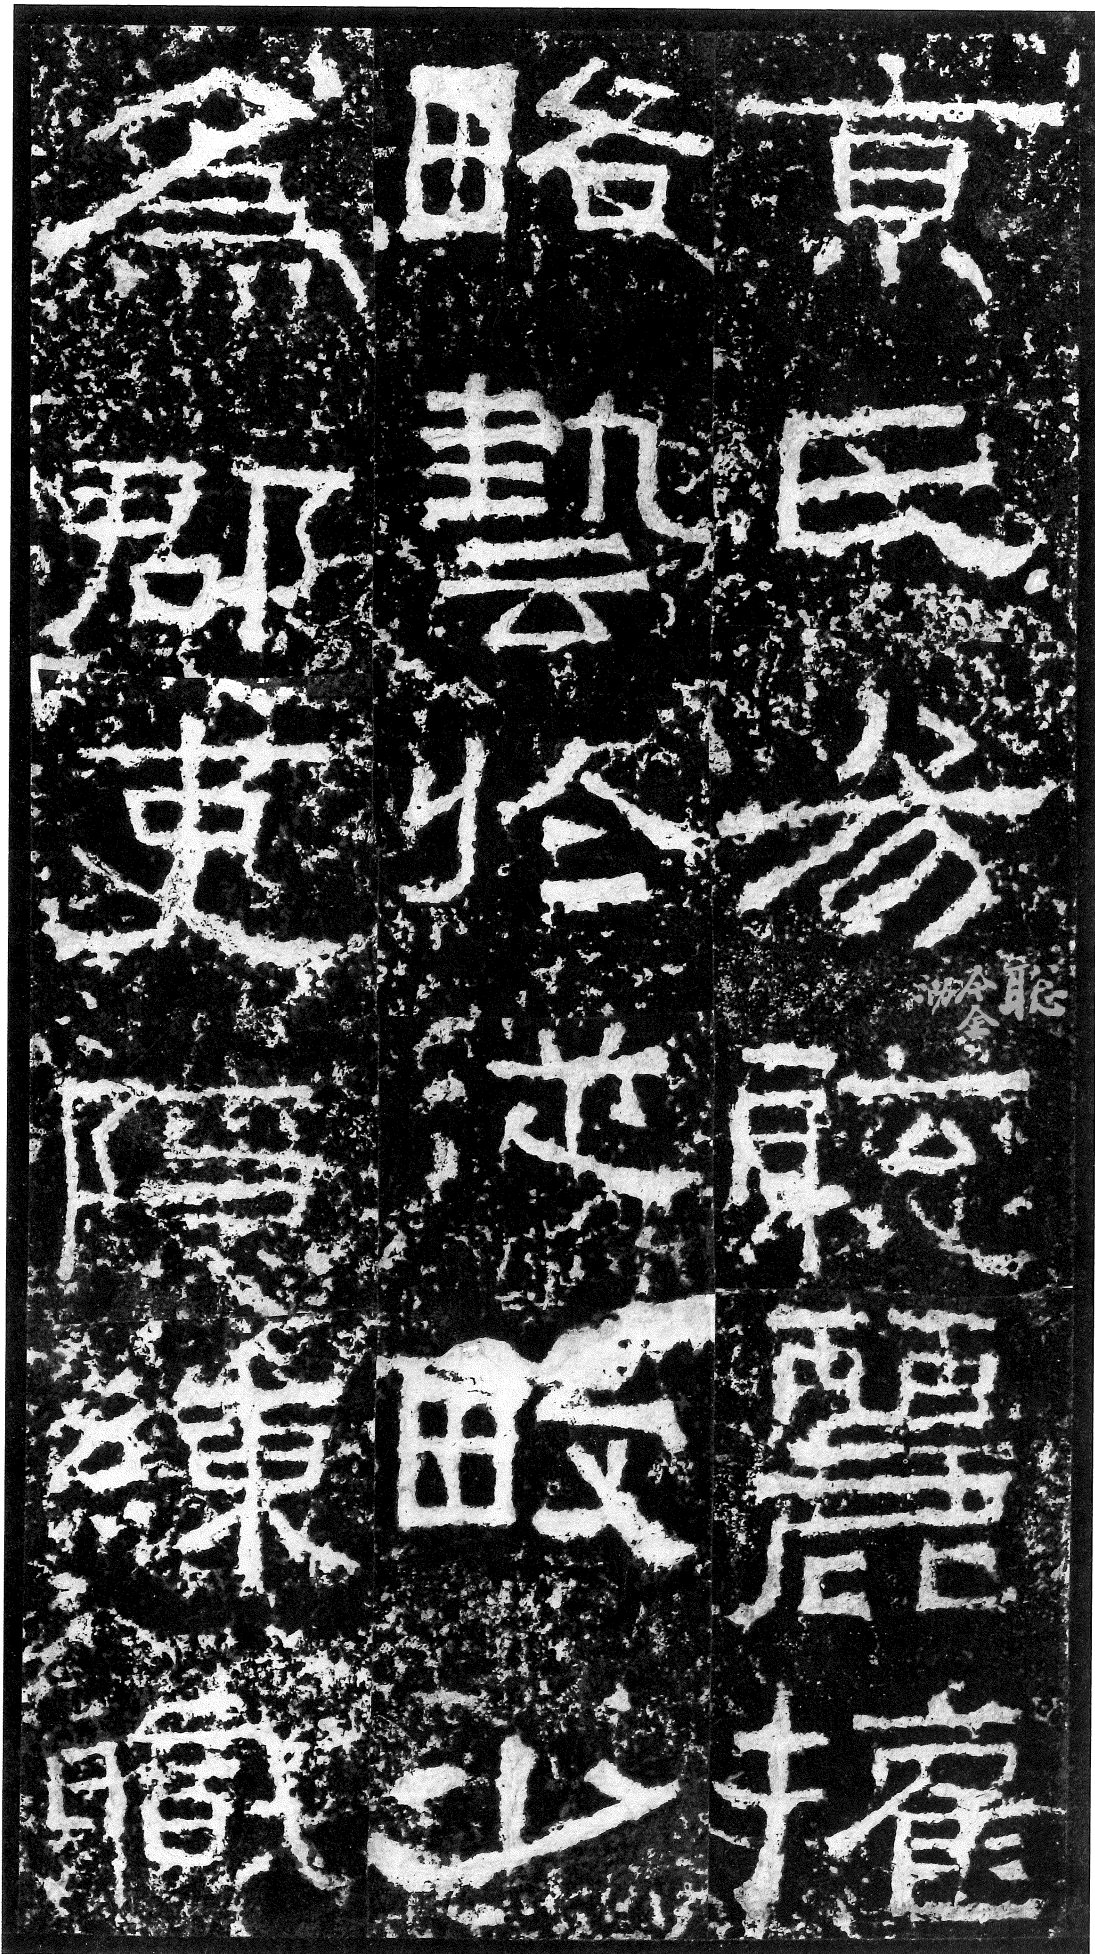 京氏易聰麗權
略藝於從畋少
為郡吏隱練職